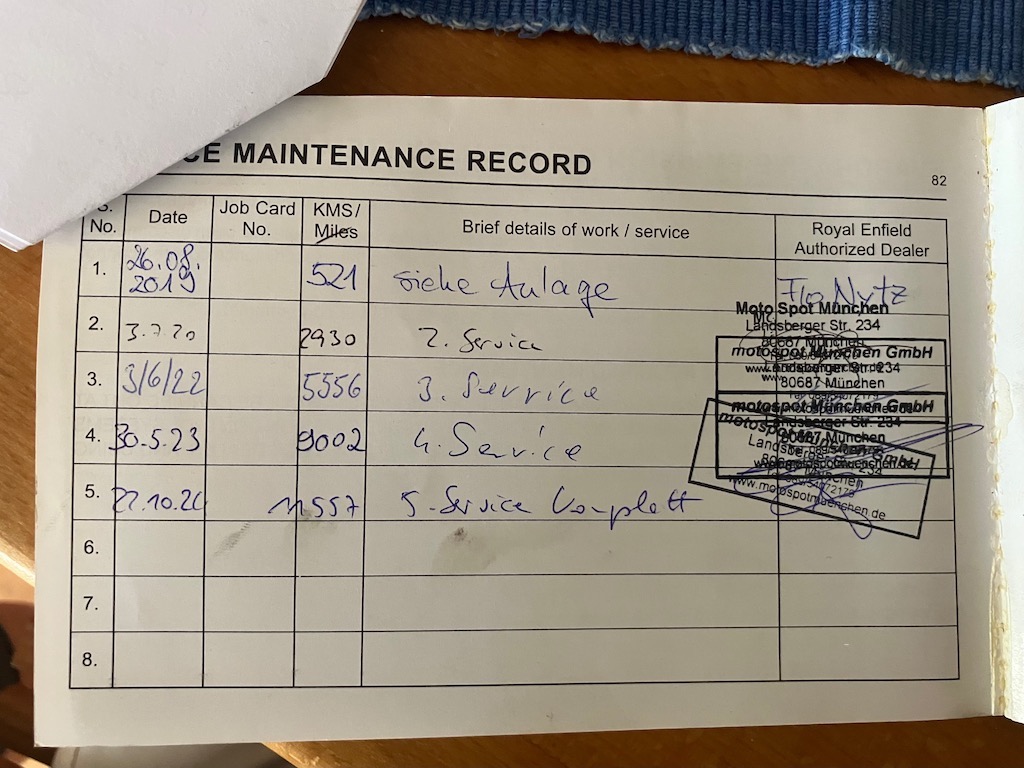 CE MAINTENANCE RECORD
82
S. No. Date Job Card No. KMS/ Miles Brief details of work / service Royal Enfield Authorized Dealer
1. 26.08. 2019 521 siehe Anlage Flo Nytz
Moto Spot München
Landsberger Str. 234
80687 München
2. 3.7.20 2930 2. Service
motospot München GmbH
Landsberger Str. 234
80687 München
3. 3/6/22 5556 3. Service
motospot München GmbH
Landsberger Str. 234
80687 München
4. 30.5.23 9002 4. Service
motospot
www.motospotmuenchen.de
5. 22.10.24 11557 5. Service komplett
6.
7.
8.